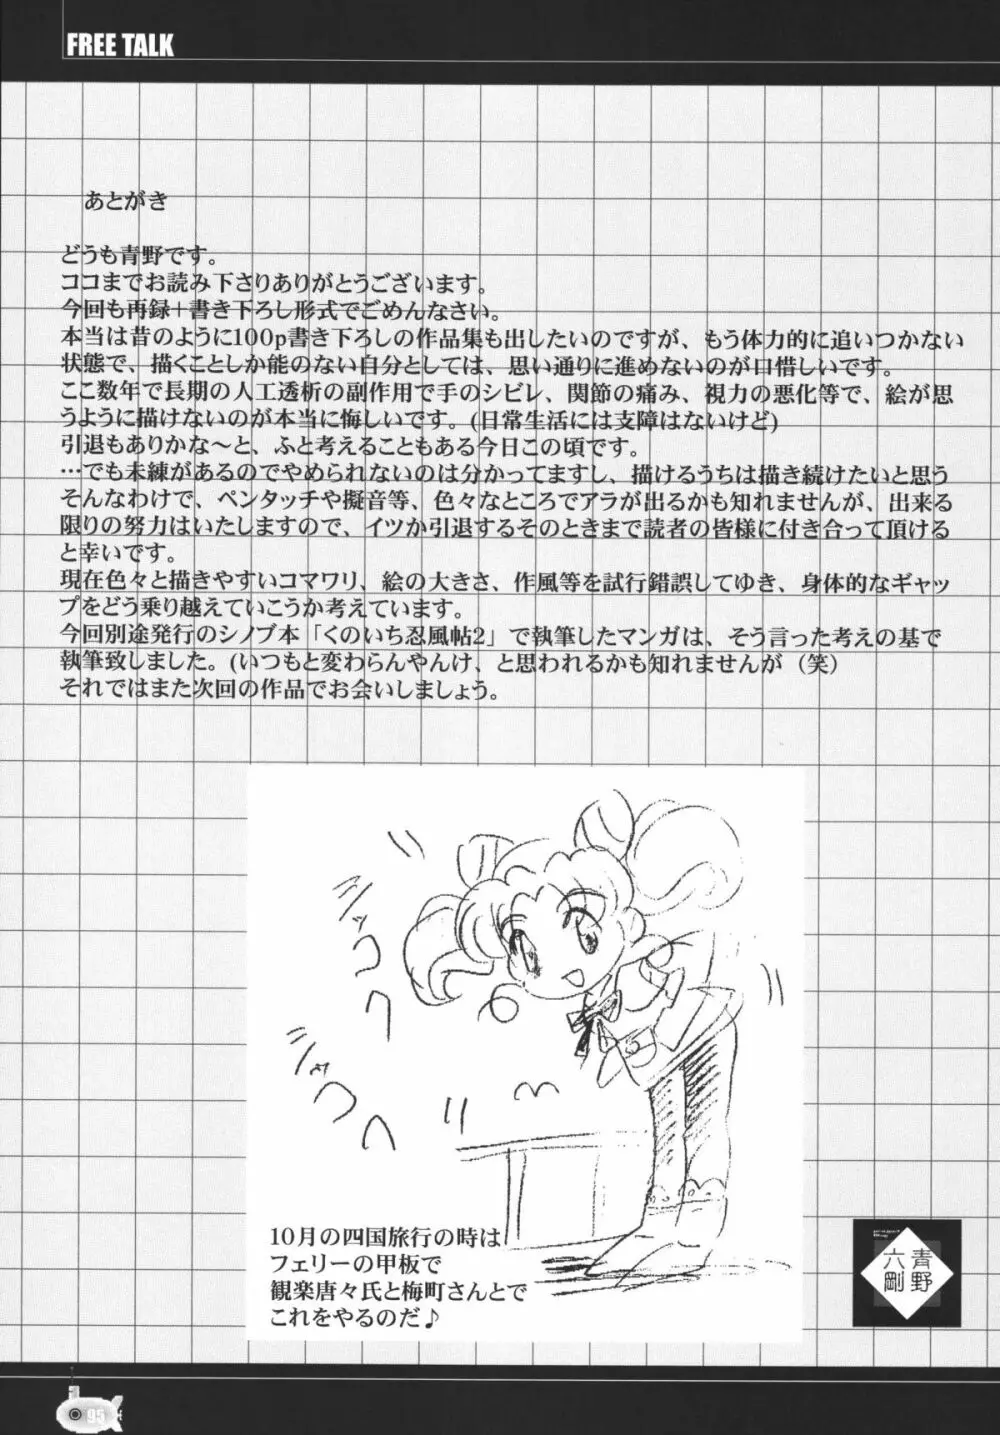 FREE TALK
あとがき
どうも青野です。
ココまでお読み下さりありがとうございます。
今回も再録＋書き下ろし形式でごめんなさい。
本当は昔のように100p書き下ろしの作品集も出したいのですが、もう体力的に追いつかない
状態で、描くことしか能のない自分としては、思い通りに進めないのが口惜しいです。
ここ数年で長期の人工透析の副作用で手のシビレ、関節の痛み、視力の悪化等で、絵が思
うように描けないのが本当に悔しいです。(日常生活には支障はないけど)
引退もありかな～と、ふと考えることもある今日この頃です。
…でも未練があるのでやめられないのは分かってますし、描けるうちは描き続けたいと思う
そんなわけで、ペンタッチや擬音等、色々なところでアラが出るかも知れませんが、出来る
限りの努力はいたしますので、イツか引退するそのときまで読者の皆様に付き合って頂ける
と幸いです。
現在色々と描きやすいコマワリ、絵の大きさ、作風等を試行錯誤してゆき、身体的なギャッ
プをどう乗り越えていこうか考えています。
今回別途発行のシノブ本「くのいち忍風帖2」で執筆したマンガは、そう言った考えの基で
執筆致しました。(いつもと変わらんやんけ、と思われるかも知れませんが（笑）
それではまた次回の作品でお会いしましょう。
シャコ
ヘ
シャコ
ヘ
10月の四国旅行の時は
フェリーの甲板で
観楽唐々氏と梅町さんとで
これをやるのだ♪
青野
六剛
95